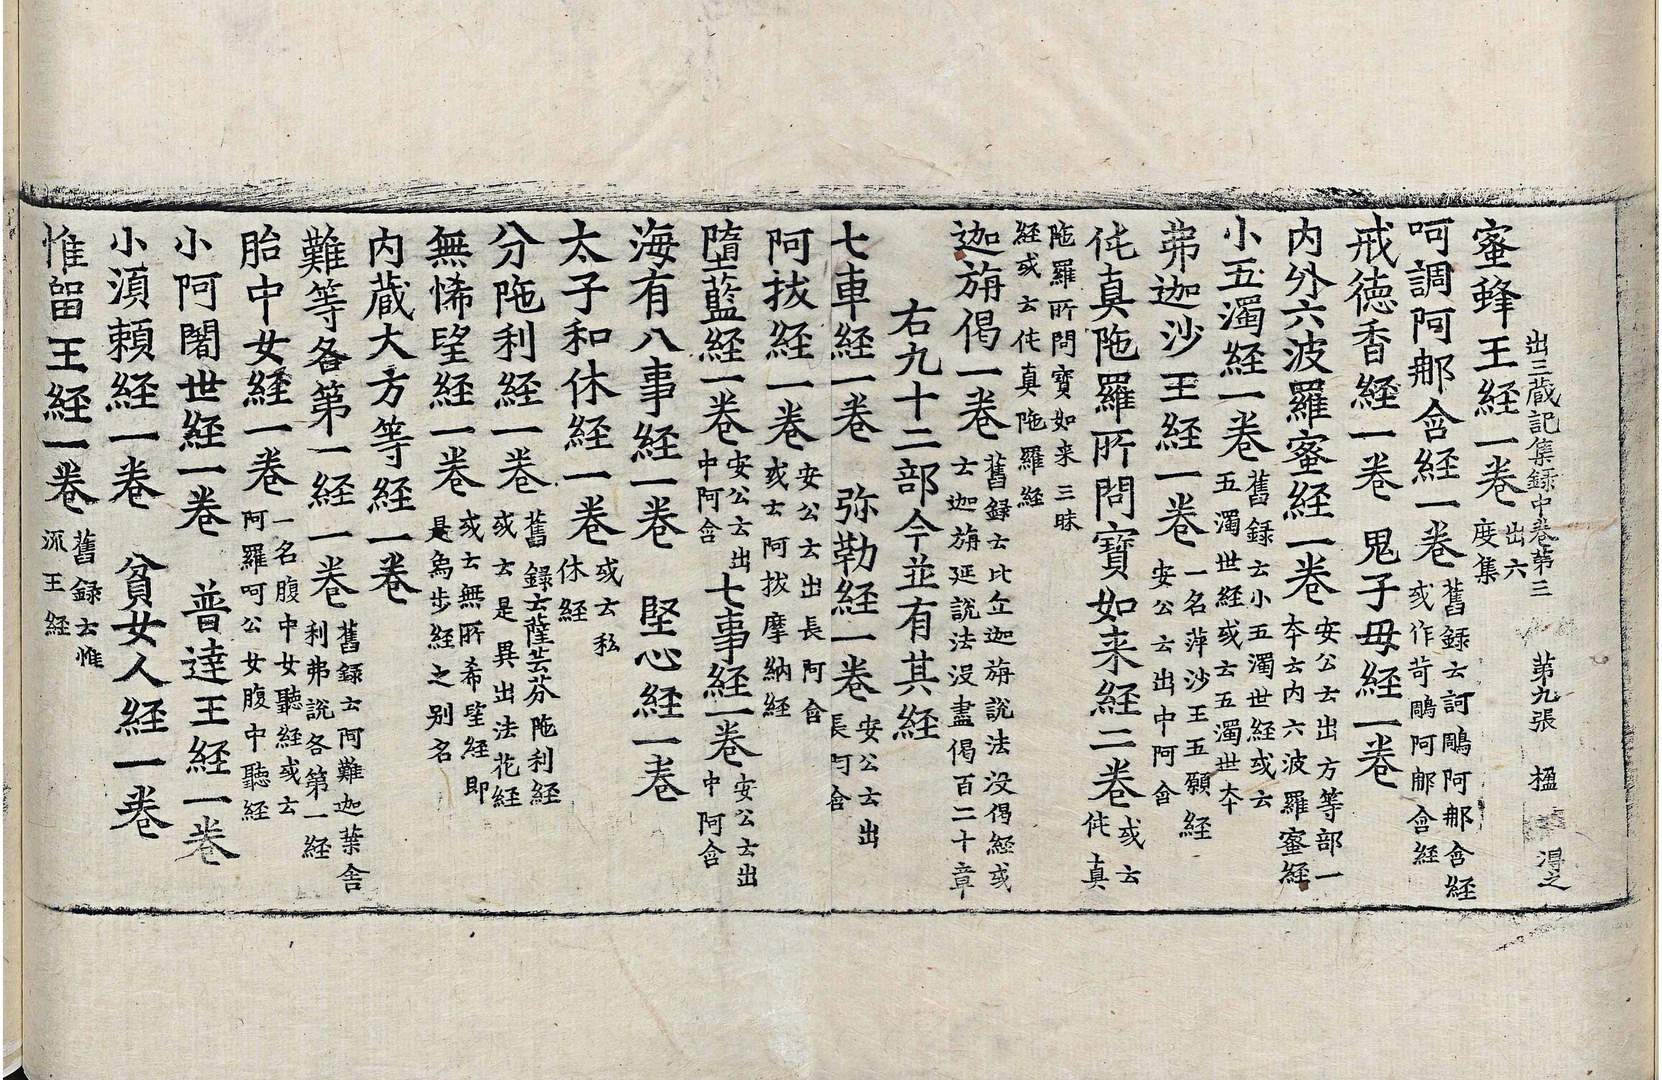 出三蔵記集録中卷第三 第九張 楹 淂之
蜜蜂王経一卷 出六度集
呵調阿郍含経一卷 舊録云訶鵰阿郍含経或作苛鵰阿郍含経
戒徳香経一卷 鬼子母経一卷
内外六波羅蜜経一卷 安公云出方等部一夲云内六波羅蜜経
小五濁経一卷 舊録云小五濁世経或云五濁世経或云五濁世夲
茀迦沙王経一卷 一名萍沙王五願経安公云出中阿含
伅真陁羅所問寶如来経二卷 或云伅真
陁羅所問寶如来三昧経或云伅真陁羅経
迦旃偈一卷 舊録云比丘迦旃説法没偈経或云迦旃延説法没盡偈百二十章
右九十二部今並有其経
七車経一卷 弥勒経一卷 安公云出長阿含
阿拔経一卷 安公云出長阿含或云阿拔摩納経
墮藍経一卷 安公云出中阿含 七事経一卷 安公云出中阿含
海有八事経一卷 堅心経一卷
太子和休経一卷 或云私休経
分陁利経一卷 舊録云薩芸芬陁利経或云是異出法花経
無悕望経一卷 或云無所希望経即是烏歩経之别名
内蔵大方等経一卷
難等各第一経一卷 舊録云阿難迦葉舎利弗説各第一経
胎中女経一卷 一名腹中女聽経或云阿羅呵公女腹中聽経
小阿闍世経一卷 普達王経一卷
小湏頼経一卷 貧女人経一卷
惟留王経一卷 舊録云惟流王経